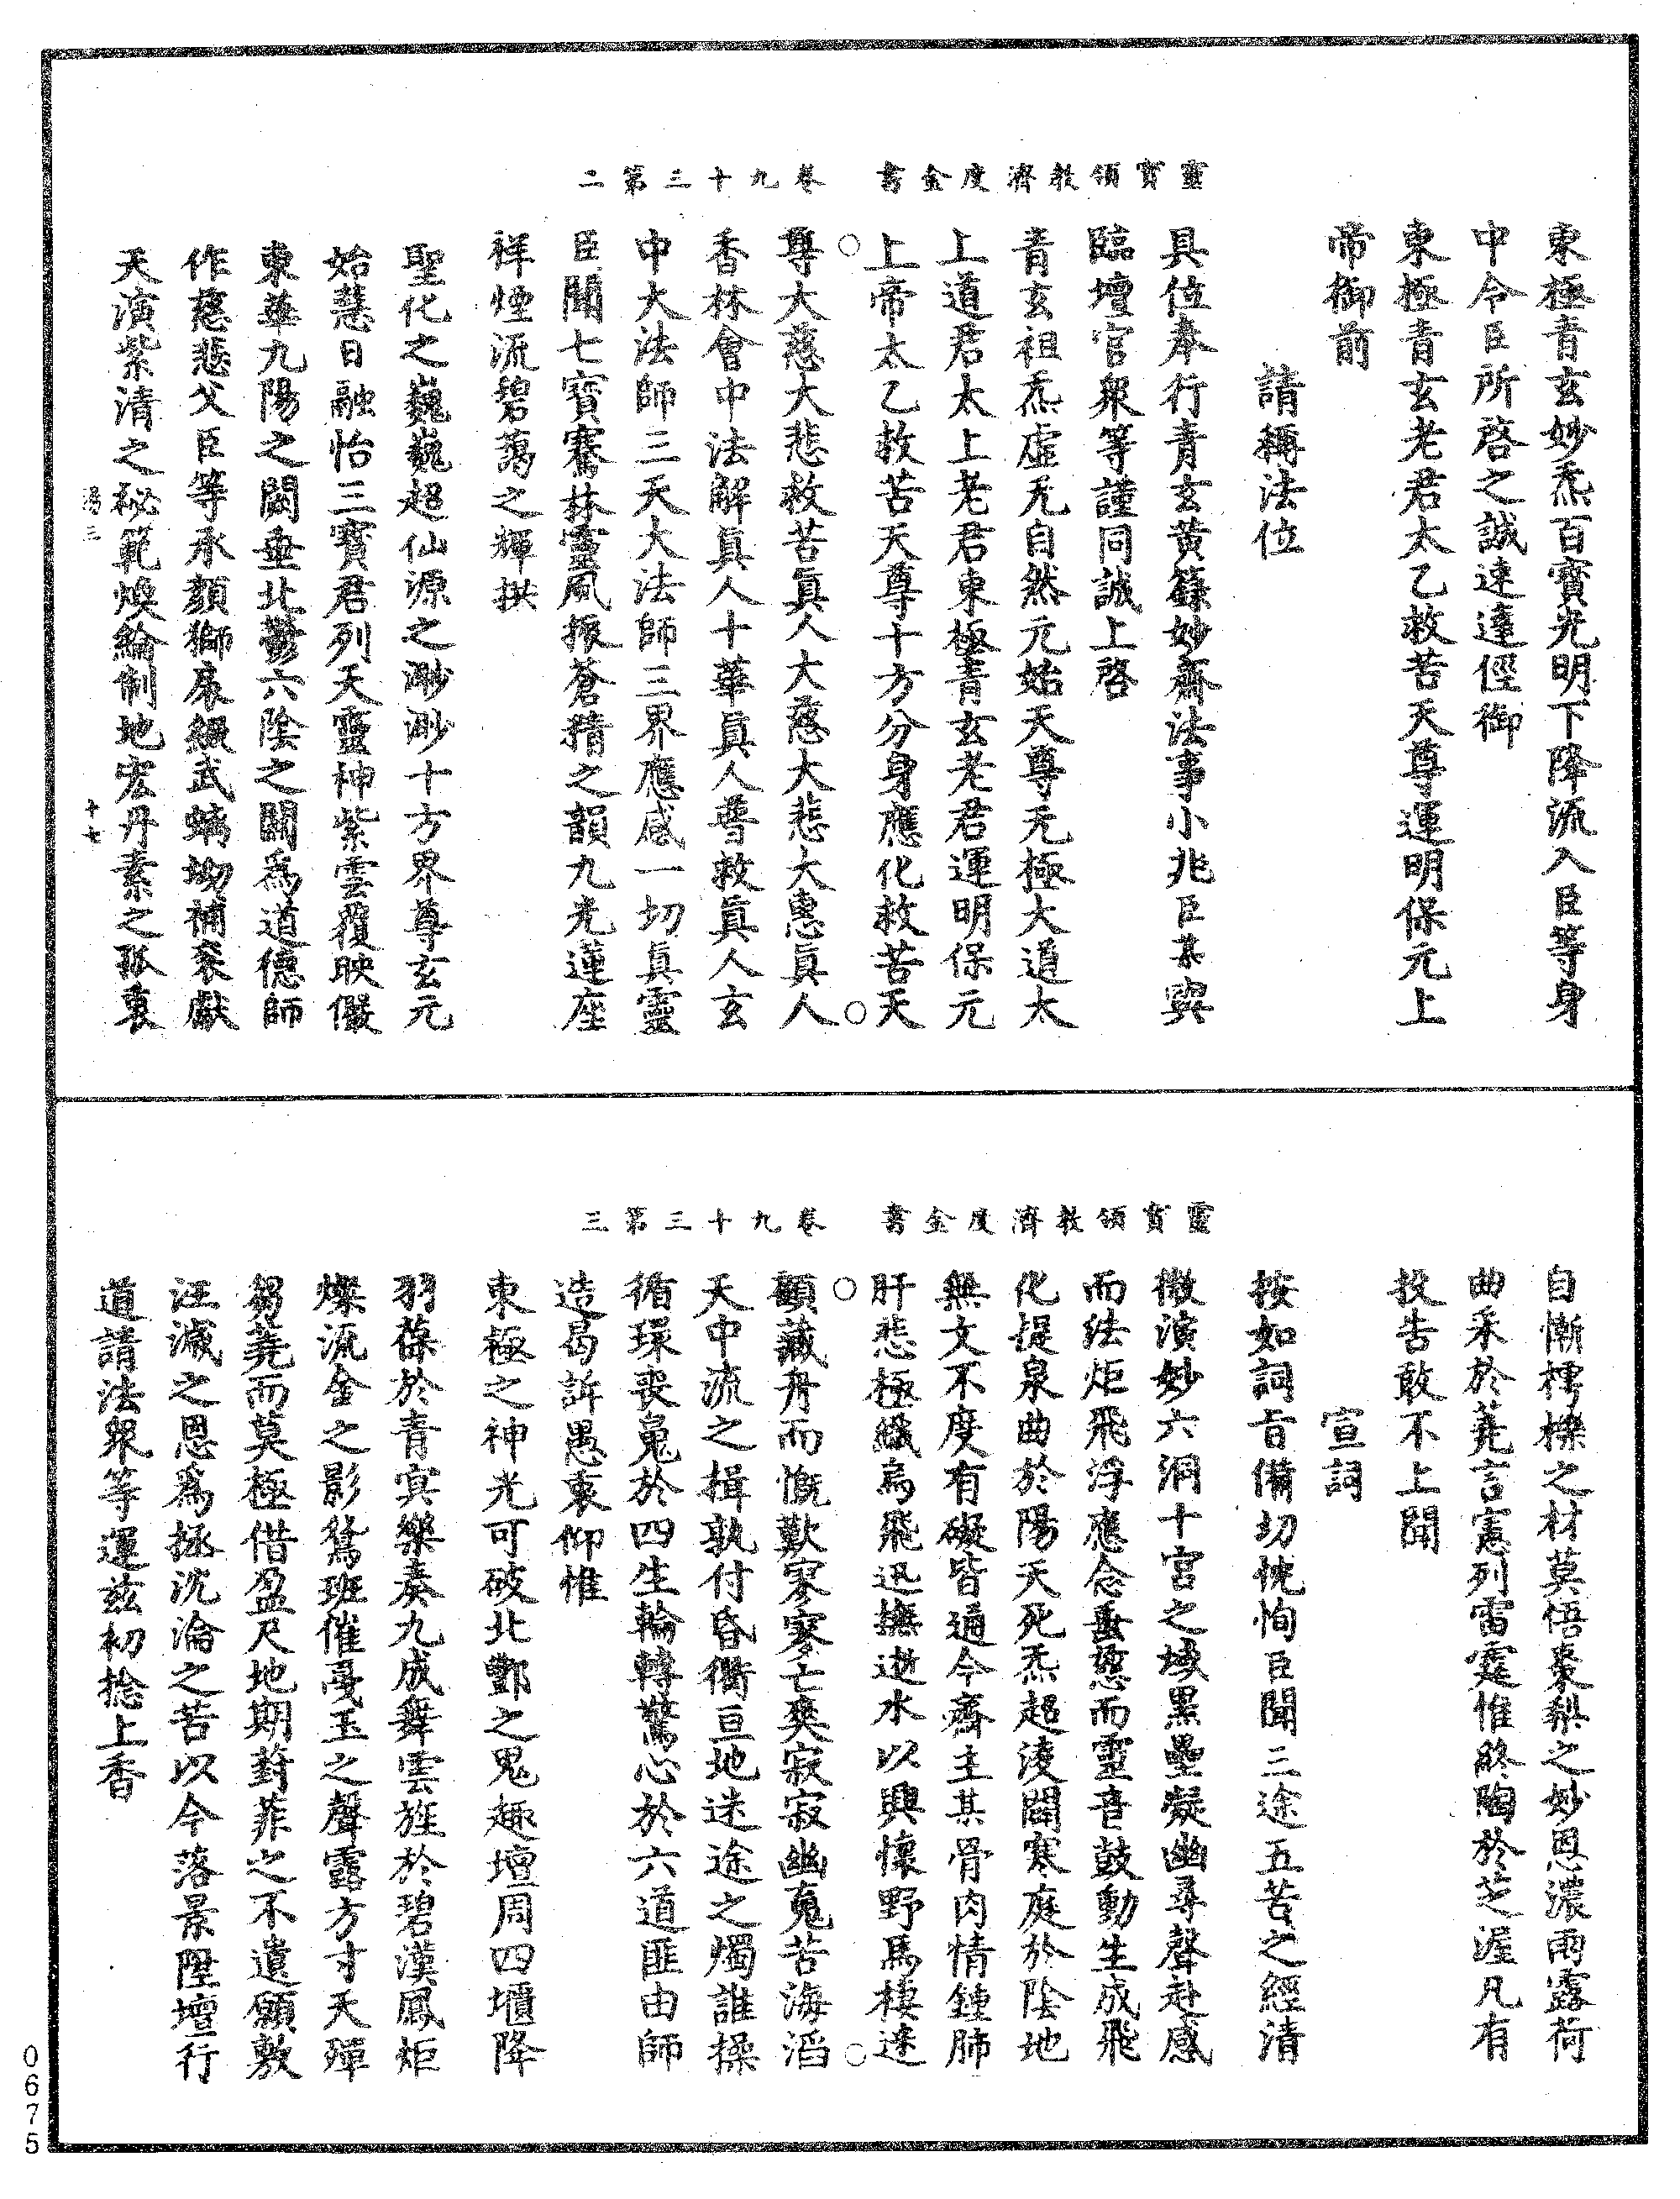 靈寶領教濟度金書　卷九十三第二
東極青玄妙炁百寶光明下降流入臣等身
中令臣所啓之誠速達徑御
東極青玄老君太乙救苦天尊運明保元上
帝御前
請稱法位
具位奉行青玄黃籙妙齋法事小兆臣某與
臨壇官衆等謹同誠上啓
青玄祖炁虛无自然元始天尊无極大道太
上道君太上老君東極青玄老君運明保元
上帝太乙救苦天尊十方分身應化救苦天
尊大慈大悲救苦眞人大慈大悲大惠眞人
香林會中法解眞人十華眞人普救眞人玄
中大法師三天大法師三界應感一切眞靈
臣聞七寶騫林靈風振蒼精之韻九光蓮座
祥煙流碧藹之輝拱
聖化之巍巍超仙源之渺渺十方界尊玄元
始慧日融怡三寶君列天靈神紫雲覆映儼
東華九陽之闕垂北鬱六陰之關爲道德師
作慈悲父臣等承顏獅扆綴武螭坳補衮獻
天演紫清之秘範煥綸制地宏丹素之孤衷
湯三　十七
靈寶領教濟度金書　卷九十三第三
自慚樗櫟之材莫悟棗梨之妙恩濃雨露荷
曲采於蕘言憲列雷霆惟終陶於芝渥凡有
投告敢不上聞
宣詞
按如詞旨備切忱恂臣聞三途五苦之經清
微演妙六洞十宮之域黑壘凝幽尋聲赴感
而法炬飛浮應念垂慈而靈音鼓動生成飛
化提泉曲於陽天死炁超淩闢寒庭於陰地
無文不度有礙皆通今齋主某骨肉情鍾肺
肝悲極纖烏飛迅撫逝水以興懷野馬棲迷
顧藏舟而慨歎寥寥亡爽寂寂幽䰟苦海滔
天中流之揖孰付昏衢亘地迷途之燭誰操
循環喪䰟於四生輪轉驚心於六道匪由師
造曷訴愚衷仰惟
東極之神光可破北酆之鬼趣壇周四壥降
羽葆於青㝠樂奏九成舞雲旌於碧漢鳳炬
燦流金之影鴛班催戛玉之聲露方寸天殫
芻蕘而莫極借盈尺地期葑菲之不遺願敷
汪濊之恩爲拯沈淪之苦以今落景陞壇行
道請法衆等運兹初捻上香
0675